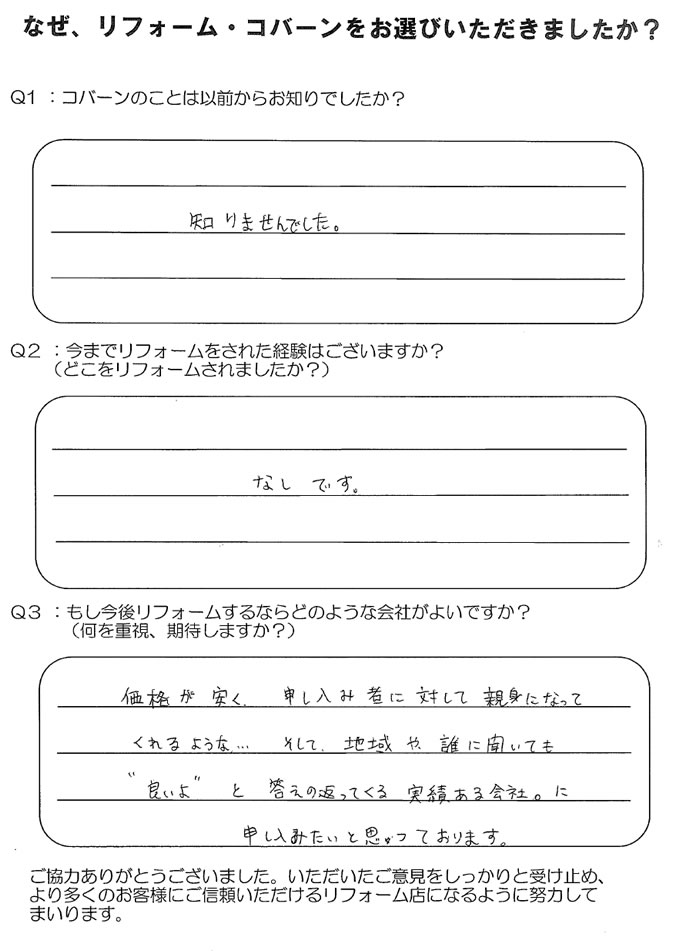 なぜ、リフォーム・コバーンをお選びいただきましたか？
Q1 ：コバーンのことは以前からお知りでしたか？
知りませんでした。
Q2 ：今までリフォームをされた経験はございますか？
（どこをリフォームされましたか？）
なしです。
Q3 ：もし今後リフォームするならどのような会社がよいですか？
（何を重視、期待しますか？）
価格が安く、申し込み者に対して親身になって
くれるような… そして、地域や、誰に聞いても
“良いよ”と答えの返ってくる実績ある会社。に
申し込みたいと思っております。
ご協力ありがとうございました。いただいたご意見をしっかりと受け止め、
より多くのお客様にご信頼いただけるリフォーム店になるように努力して
まいります。